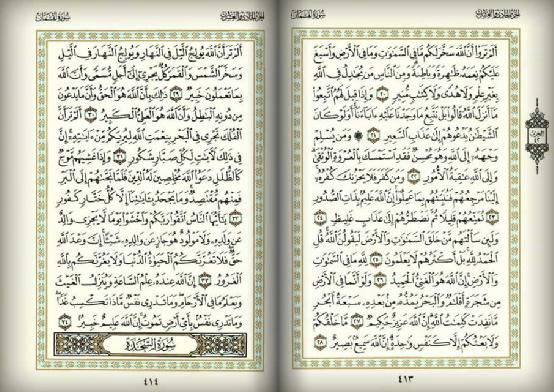 الجزء الحادي والعشرون سورة لقمان
ألم تروا أن الله سخر لكم ما في السموت وما في الأرض وأسبغ
عليكم نعمه ظهرة وباطنة ومن الناس من يجدل في الله
بغير علم ولا هدى ولا كتب منير ٢٠ وإذا قيل لهم اتبعوا
ما أنزل الله قالوا بل نتبع ما وجدنا عليه ءاباءنا أولو كان
الشيطن يدعوهم إلى عذاب السعير ٢١ ۞ ومن يسلم
وجهه إلى الله وهو محسن فقد استمسك بالعروة الوثقى
وإلى الله عقبة الأمور ٢٢ ومن كفر فلا يحزنك كفره
إلينا مرجعهم فننبئهم بما عملوا إن الله عليم بذات الصدور
٢٣ نمتعهم قليلا ثم نضطرهم إلى عذاب غليظ ٢٤
ولئن سألتهم من خلق السموت والأرض ليقولن الله قل
الحمد لله بل أكثرهم لا يعلمون ٢٥ لله ما في السموت
والأرض إن الله هو الغني الحميد ٢٦ ولو أنما في الأرض
من شجرة أقلم والبحر يمده من بعده سبعة أبحر
ما نفدت كلمت الله إن الله عزيز حكيم ٢٧ ما خلقكم
ولا بعثكم إلا كنفس وحدة إن الله سميع بصير ٢٨
الحزب
٤٢
٤١٣
الجزء الحادي والعشرون سورة لقمان
ألم تر أن الله يولج اليل في النهار ويولج النهار في اليل
وسخر الشمس والقمر كل يجري إلى أجل مسمى وأن الله
بما تعملون خبير ٢٩ ذلك بأن الله هو الحق وأن ما يدعون
من دونه البطل وأن الله هو العلي الكبير ٣٠ ألم تر أن
الفلك تجري في البحر بنعمت الله ليريكم من ءايته إن
في ذلك لأيت لكل صبار شكور ٣١ وإذا غشيهم موج
كالظلل دعوا الله مخلصين له الدين فلما نجىهم إلى البر
فمنهم مقتصد وما يجحد بءايتنا إلا كل ختار كفور
٣٢ يأيها الناس اتقوا ربكم واخشوا يوما لا يجزي والد
عن ولده ولا مولود هو جاز عن والده شيءا إن وعد الله
حق فلا تغرنكم الحيوة الدنيا ولا يغرنكم بالله
الغرور ٣٣ إن الله عنده علم الساعة وينزل الغيث
ويعلم ما في الأرحام وما تدري نفس ماذا تكسب غدا
وما تدري نفس بأي أرض تموت إن الله عليم خبير ٣٤
سورة السجدة
٤١٤